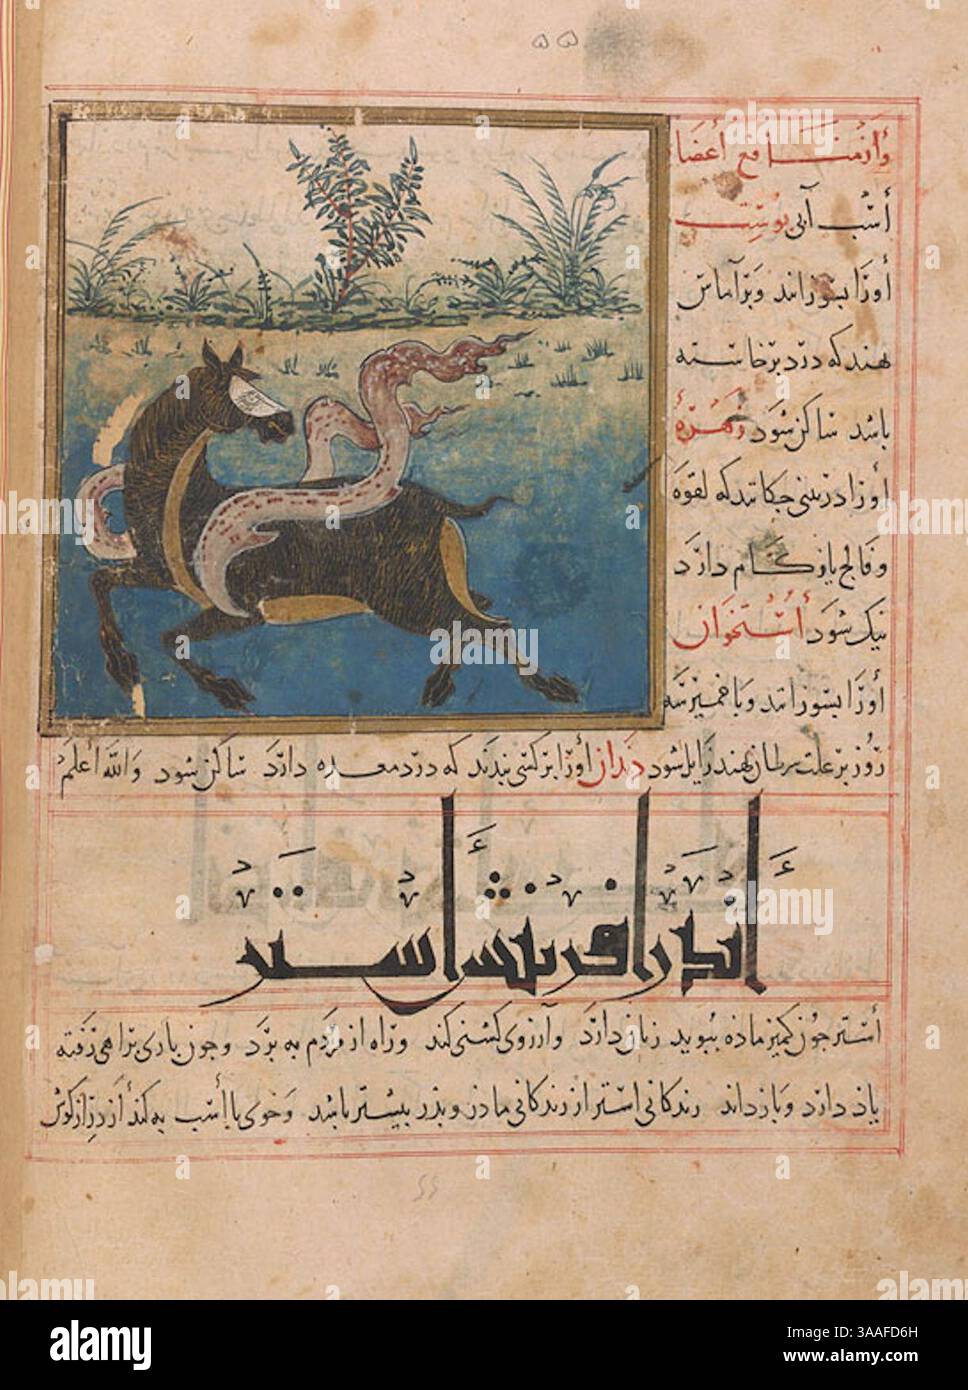 ۵۵
وَأزمنَـــافع أعضَا
أسْب آبی پُوسْت
أورَا بسُوزانند وبَرآماس
نهند که دَرد برخاسته
باشد ساکن شود زَهْرَهٔ
أورا در بینی چکانند که لقوه
وفالج یا زکــام دارد
نیک شود أُسْتخوان
أورَا بسوزانند وباخمیر سه
رُوز بر علت سرطان نهند زایل شود دندان أورا بر کسی بندند که درد معده دارد ساکن شود وَاللّه أعلمُ
أندر آفرینش أستر
أستر جون کمیز ماده ببوید زیان دارد وآرزوی کشنی کند وراه از مردم به برد وجون باری براهی رفته
یاد دارد وبازداند زندکانی استر از زندکانی مادر وپدر بیشتر باشد وخوی با أسب به کند أز دراز کوش
alamy
Image ID: 3AAFD6H
www.alamy.com